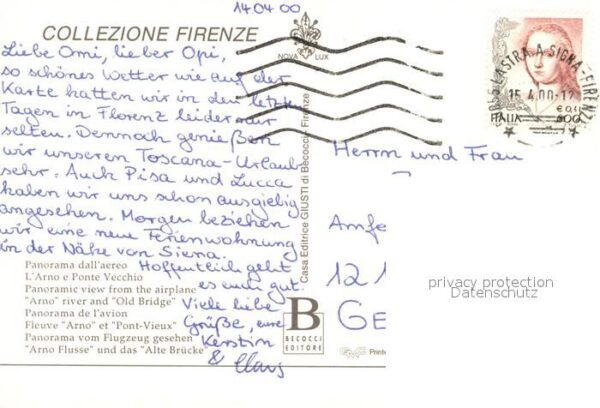 14.04.00
COLLEZIONE FIRENZE
NOVA LUX
Liebe Omi, lieber Opi,
so schönes Wetter wie auf der
Karte hatten wir in den letzten
Tagen in Florenz leider nur
selten. Dennoch genießen
wir unseren Toscana-Urlaub
sehr. Auch Pisa und Lucca
haben wir uns schon ausgiebig
angesehen. Morgen beziehen
wir eine neue Ferienwohnung
in der Nähe von Siena.
Hoffentlich geht
es euch gut.
Viele liebe
Grüße, eure
Kerstin
&
Panorama dall'aereo
L'Arno e Ponte Vecchio
Panoramic view from the airplane
"Arno" river and "Old Bridge"
Panorama de l'avion
Fleuve "Arno" et "Pont-Vieux"
Panorama vom Flugzeug gesehen
"Arno Flusse" und das "Alte Brücke"
Casa Editrice GIUSTI di Becocci - Firenze
B
BECOCCI
EDITORE
LASTRA A SIGNA-FIRENZE
15.4.00-12
€ 0,41
ITALIA 800
Herrn und Frau
Amfo
121
GE
privacy protection
Datenschutz
Printe